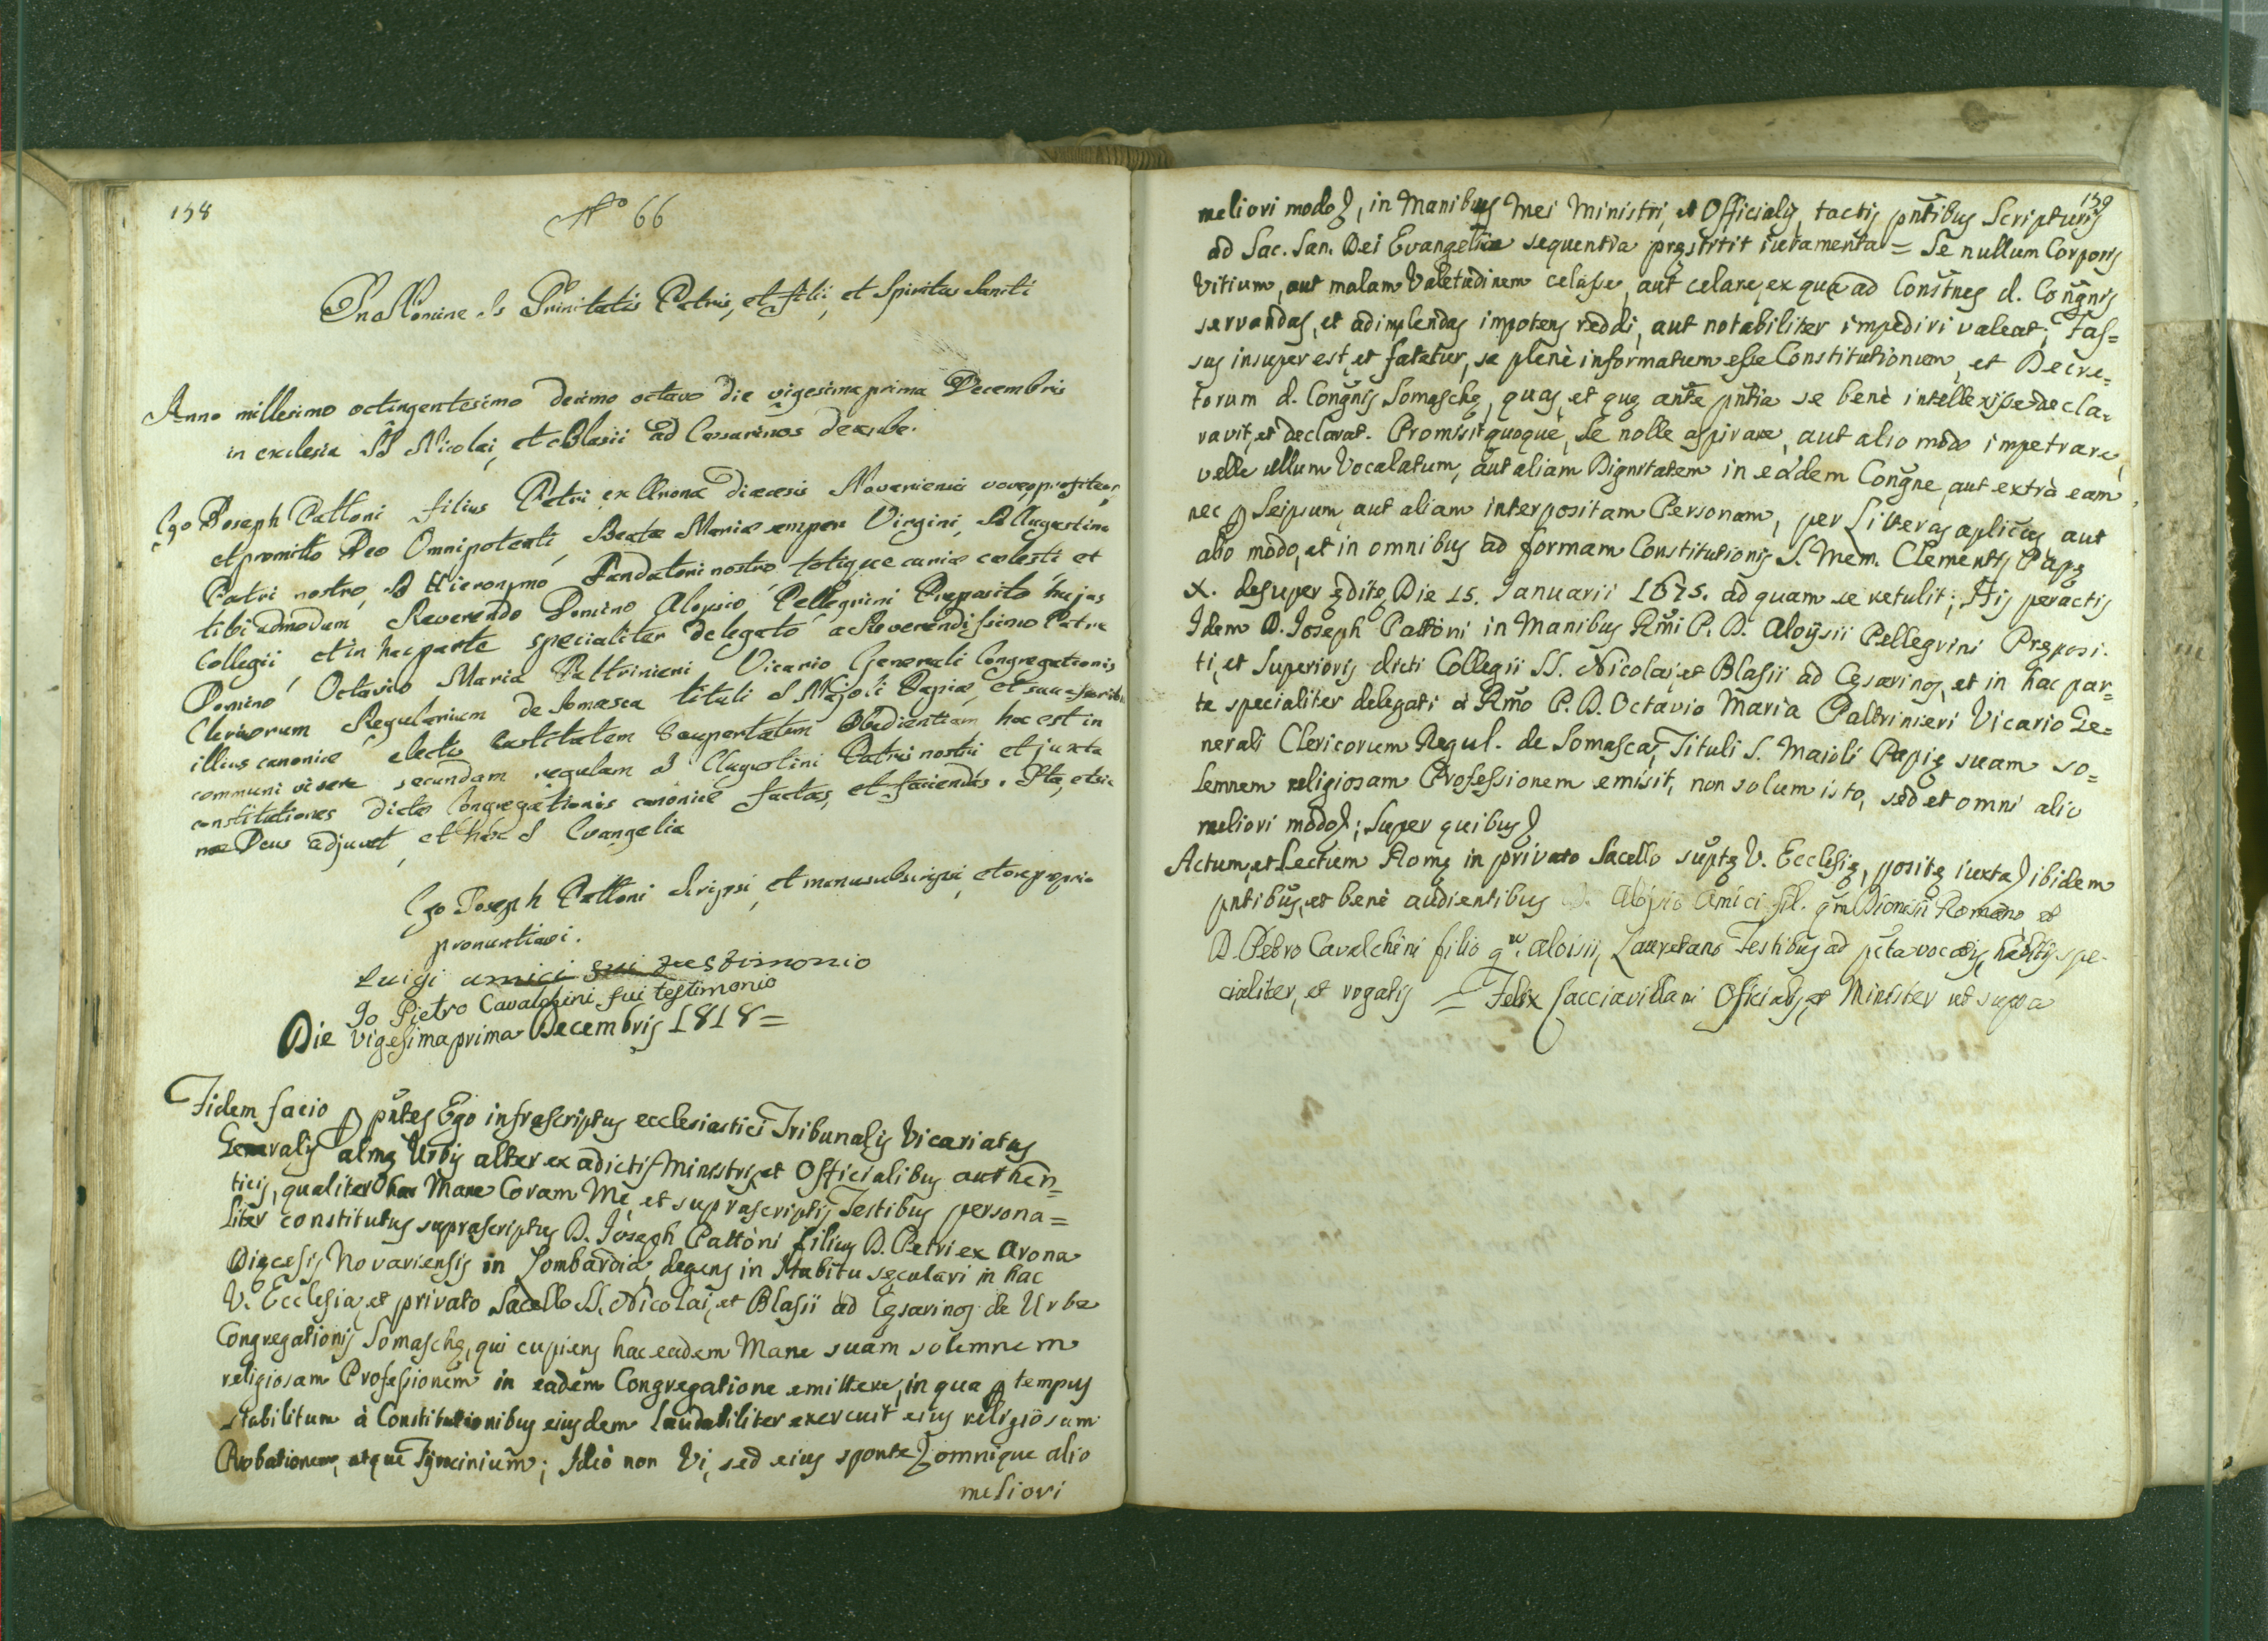 158
N° 66
In Nomine Ss Trinitatis Patris, et filii, et Spiritus Sancti
Anno millesimo octingentesimo decimo octavo die vigesima prima Decembris
in ecclesia SS Nicolai, et Blasii ad Cesarinos de urbe.
Ego Joseph Pattoni filius Petri ex Arona diæcesis Novariensis voveo, profiteor,
et promitto Deo Omnipotenti, Beatæ Mariæ semper Virgini, S Augustino
Patri nostro, S Hieronymo Fundatori nostro, totique curiæ cælesti, et
tibi admodum Reverendo Domino Aloysio Pellegrini Præposito hujus
Collegii, et in hac parte specialiter delegato a Reverendissimo Patre
Domino Octavio Maria Paltrinieri Vicario Generali Congregationis
Clericorum Regularium de Somasca tituli S Majoli Papiæ, et successoribus
illius canonice electis Castitatem Paupertatem Obedientiam hoc est in
communi vivere secundam regulam S Augustini Patri nostri et juxta
constitutiones dictæ Congregationis canonicè factas, et faciendas. Ita, et sic
me Deus adjuvet, et hæc S Evangelia
Ego Joseph Pattoni Scripsi, et manu subscripsi, et ore proprio
pronuntiavi.
Luigi amici fui testimonio
Io Pietro Cavalchini fui testimonio
Die vigesima prima Decembris 1818 =
Fidem facio p pñtes Ego infrascriptus ecclesiastici Tribunalis Vicariatus
Generalis almę Urbis alter ex adictis Ministris, et Officialibus authen=
ticis, qualiter hac Mane Coram Me, et suprascriptis Testibus persona=
liter constitutus suprascriptus D. Joseph Pattòni filius D. Petri ex Arona
Diæcesis Novariensis in Lombardia, degens in Habitu sęculari in hac
V. Ecclesia, et privato Sacello SS. Nicolai, et Blasii ad Cęsarinos de Urbe
Congregationis Somaschę, qui cupiens hac eadem Mane suam solemnem
religiosam Professionem in eadem Congregatione emittere, in qua p tempus
stabilitum à Constitutionibus eiusdem laudabiliter exercuit eius religiosam
Probationem, atque Tyrocinium; Ideò non Vi, sed eius sponte omnique alio
meliori
159
meliori modo, in Manibus Mei Ministri, et Officialis, tactis pñtibus Scripturis
ad Sac. San. Dei Evangelia sequentia pręstitit iuramenta = Se nullum Corporis
Vitium, aut malam Valetudinem celasse, aut celare, ex qua ad Consĩtnes d. Congñis
servandas, et adimplendas impotens reddi, aut notabiliter impediri valeat; Fas=
sus insuper est, et fatetur, se plenè informatum esse Constitutionum, et Decre=
torum d. Congñis Somaschę, quas, et quę ante pñtia se benè intellexisse decla=
ravit, et declarat. Promisit quoque, Se nolle aspirare, aut alio modo impetrare,
velle ullum Vocalatum, aut aliam Dignitatem in eadem Congñe, aut extrà eam,
nec p Seipsum, aut aliam interpositam Personam, per Litteras aplicas aut
alio modo, et in omnibus ad formam Constitutionis S. Mem. Clementis Papę
X. desuper ędite, Die 15. Januarii 1675. ad quam se retulit; His peractis
Idem D. Joseph Pattòni in Manibus Rm̃i P. D. Aloÿsii Pellegrini Pręposi=
ti, et Superioris dicti Collegii SS. Nicolai, et Blasii ad Cęsarinos, et in hac par=
te specialiter delegati à Rm̃o P. D. Octavio Maria Paltrinieri Vicario Ge=
nerali Clericorum Regul. de Somasca, Tituli S. Maioli Papię suam so=
lemnem religiosam Professionem emisit, non solum isto, sed et omni alio
meliori modo; Super quibus
Actum, et Lectum Romę in privato Sacello suptę V. Ecclesię, positę iuxta ibidem
pntibus, et benè audientibus D. Aloysio Amici fil. qm̃ Dionisii Romano et
D. Petro Cavalchini filio qm̃. Aloisii, Lauretano Testibus ad pcta vocatis, habitis spe=
cialiter, et rogatis = Felix Cacciavillani Officialis, et Minister ut supra